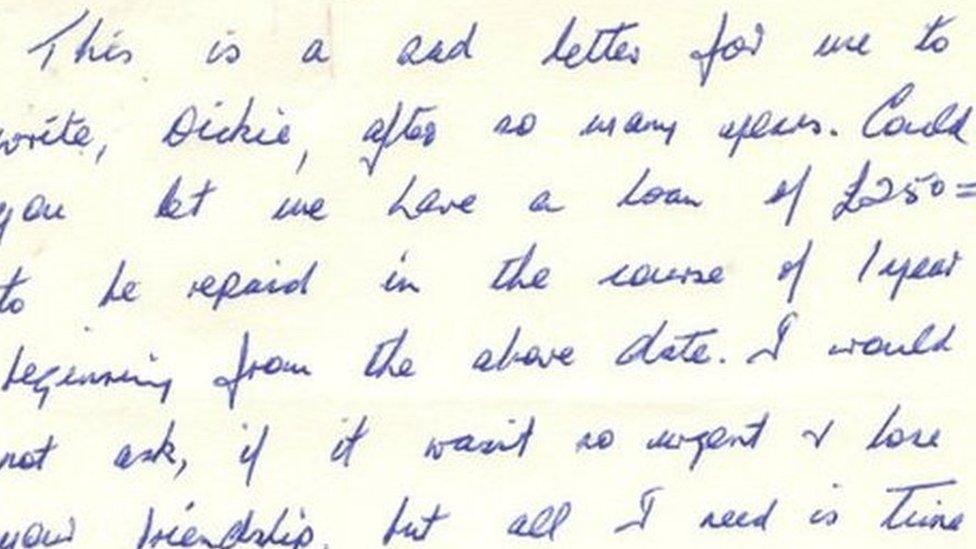 This is a sad letter for me to
write, Dickie, after so many years. Could
you let me have a loan of £250=
to be repaid in the course of 1 year
beginning from the above date. I would
not ask, if it wasn't so urgent & lose
your friendship, but all I need is Time